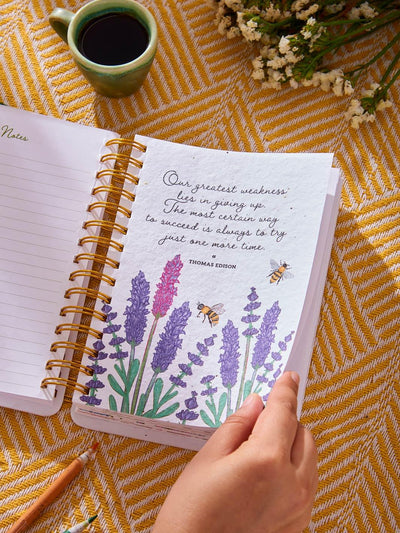 Notes
Our greatest weakness
lies in giving up.
The most certain way
to succeed is always to try
just one more time.
THOMAS EDISON